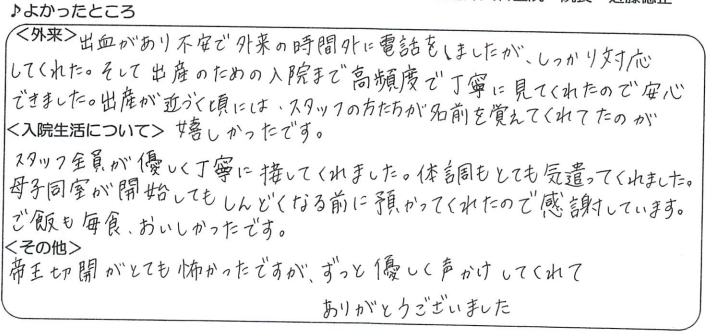 ♪よかったところ
<外来> 出血があり不安で外来の時間外に電話をしましたが、しっかり対応
してくれた。そして出産のための入院まで高頻度で丁寧に見てくれたので安心
できました。出産が近づく頃には、スタッフの方たちが名前を覚えてくれてたのが
<入院生活について> 嬉しかったです。
スタッフ全員が優しく丁寧に接してくれました。体調もとても気遣ってくれました。
母子同室が開始してもしんどくなる前に預かってくれたので感謝しています。
ご飯も毎食、おいしかったです。
<その他>
帝王切開がとても怖かったですが、ずっと優しく声かけしてくれて
ありがとうございました